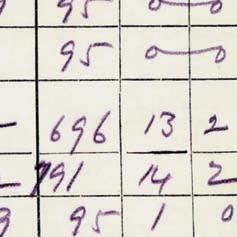 95 0 0
95 0 0
696 13 2
791 14 2
95 1 0